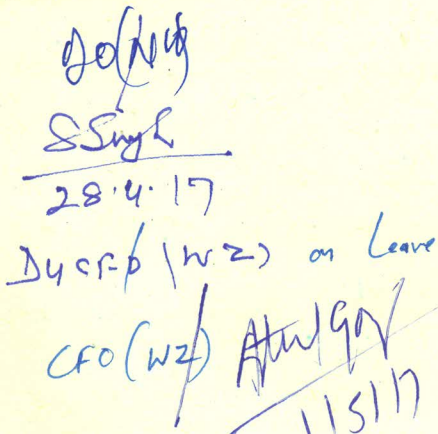 S Singh
28.4.17
Dy CFO (WZ) on Leave
CFO (WZ)
1/5/17